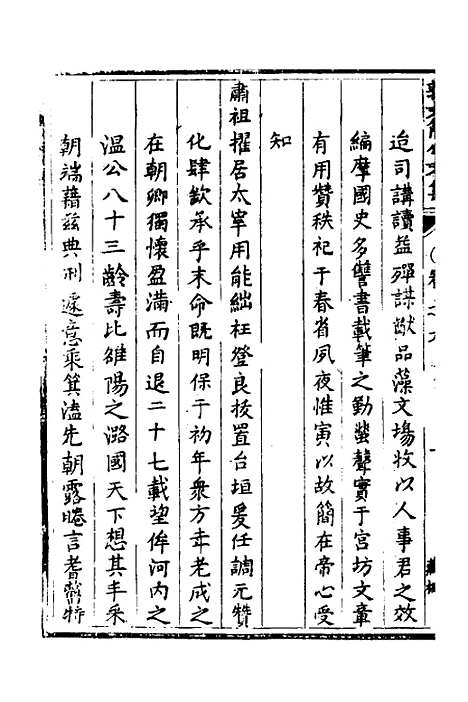 迨司講讀益殫謀猷品藻文塲收以人事君之效
編摩國史多讐書載筆之勤蜚聲實于宮坊文章
有用贊秩祀于春省夙夜惟寅以故簡在帝心受
知
肅祖擢居太宰用能絀枉登良拔置台垣爰任調元贊
化肆欽承乎末命既明保于初年衆方幸老成之
在朝卿獨懷盈滿而自退二十七載望侔河內之
温公八十三齡壽比雒陽之潞國天下想其丰采
朝端藉兹典刑遽意乘箕溘先朝露睠言耆舊特